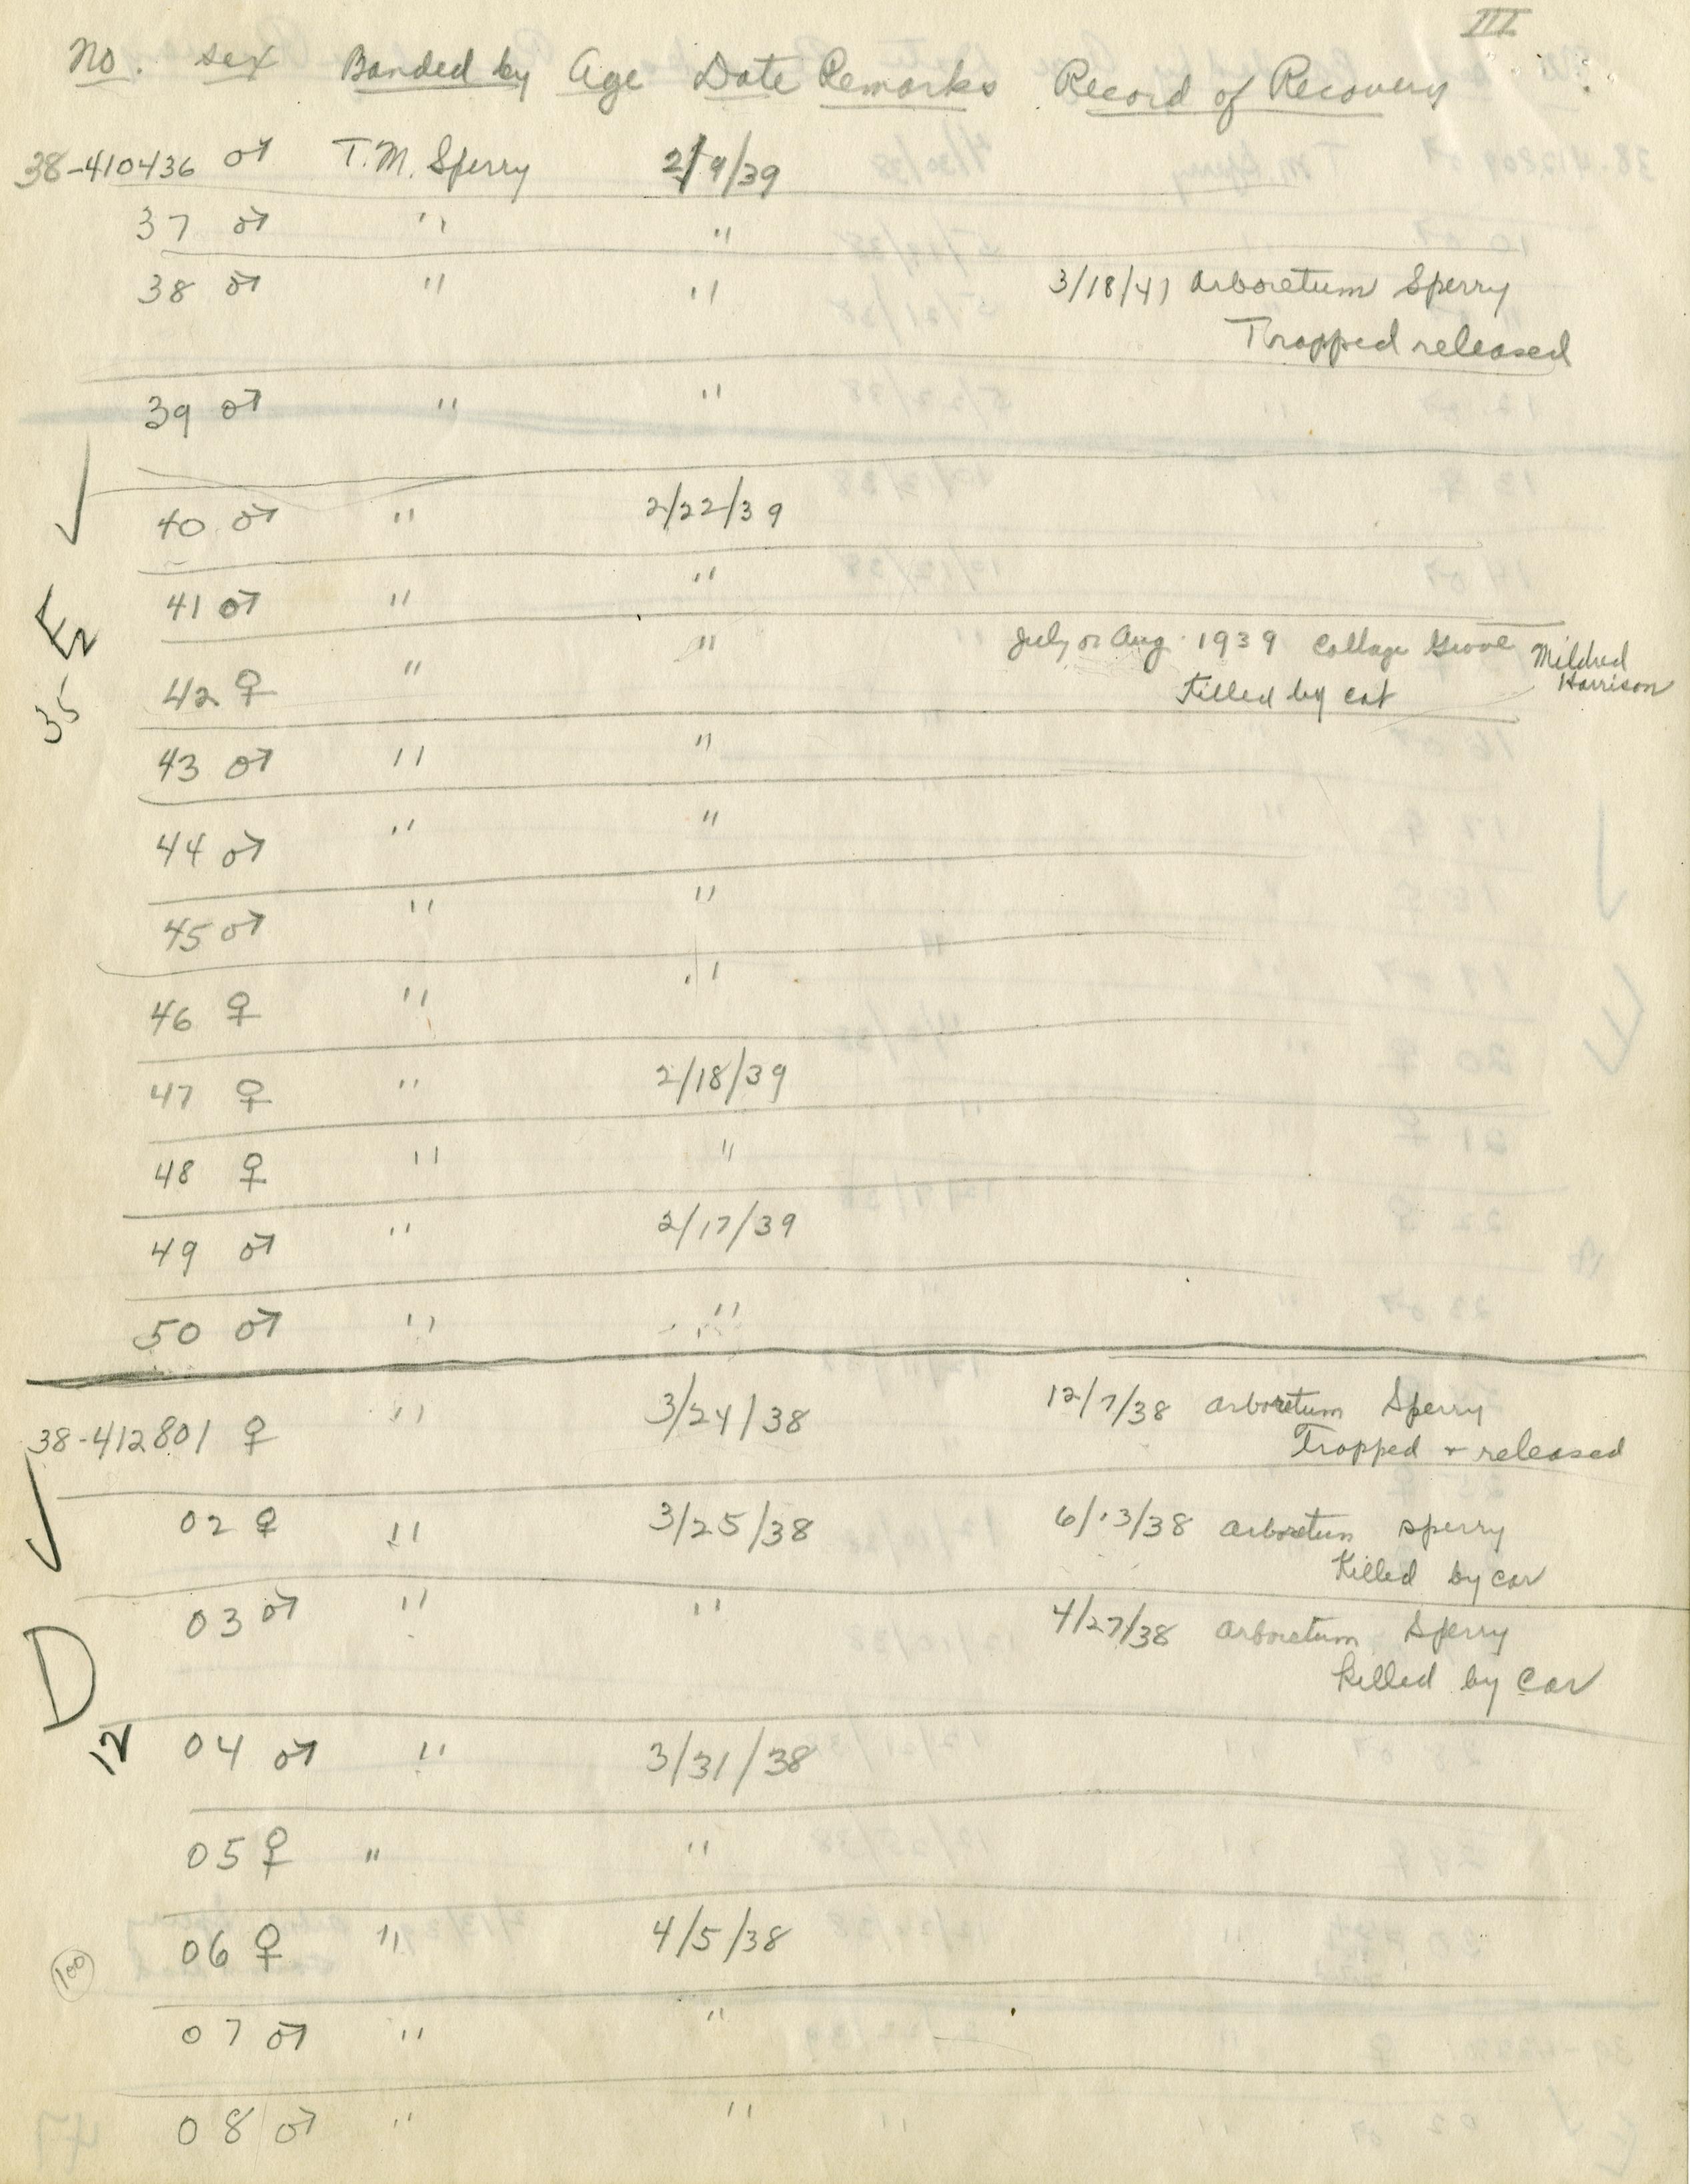 III
No. sex Banded by Age Date Remarks Record of Recovery
38-410436 ♂ T.M. Sperry 2/9/39
37 ♂ " "
38 ♂ " " 3/18/41 Arboretum Sperry
Trapped released
39 ♂ " "
40 ♂ " 2/22/39
41 ♂ " "
42 ♀ " " July or Aug. 1939 Cottage Grove Mildred
Killed by cat Harrison
43 ♂ " "
44 ♂ " "
45 ♂ " "
46 ♀ " "
47 ♀ " 2/18/39
48 ♀ " "
49 ♂ " 2/17/39
50 ♂ " "
35 E2
38-412801 ♀ " 3/24/38 12/7/38 Arboretum Sperry
Trapped + released
02 ♀ " 3/25/38 6/13/38 Arboretum Sperry
Killed by car
03 ♂ " " 4/27/38 Arboretum Sperry
killed by car
D
12
04 ♂ " 3/31/38
05 ♀ " "
06 ♀ " 4/5/38
100
07 ♂ " "
08 ♂ " "